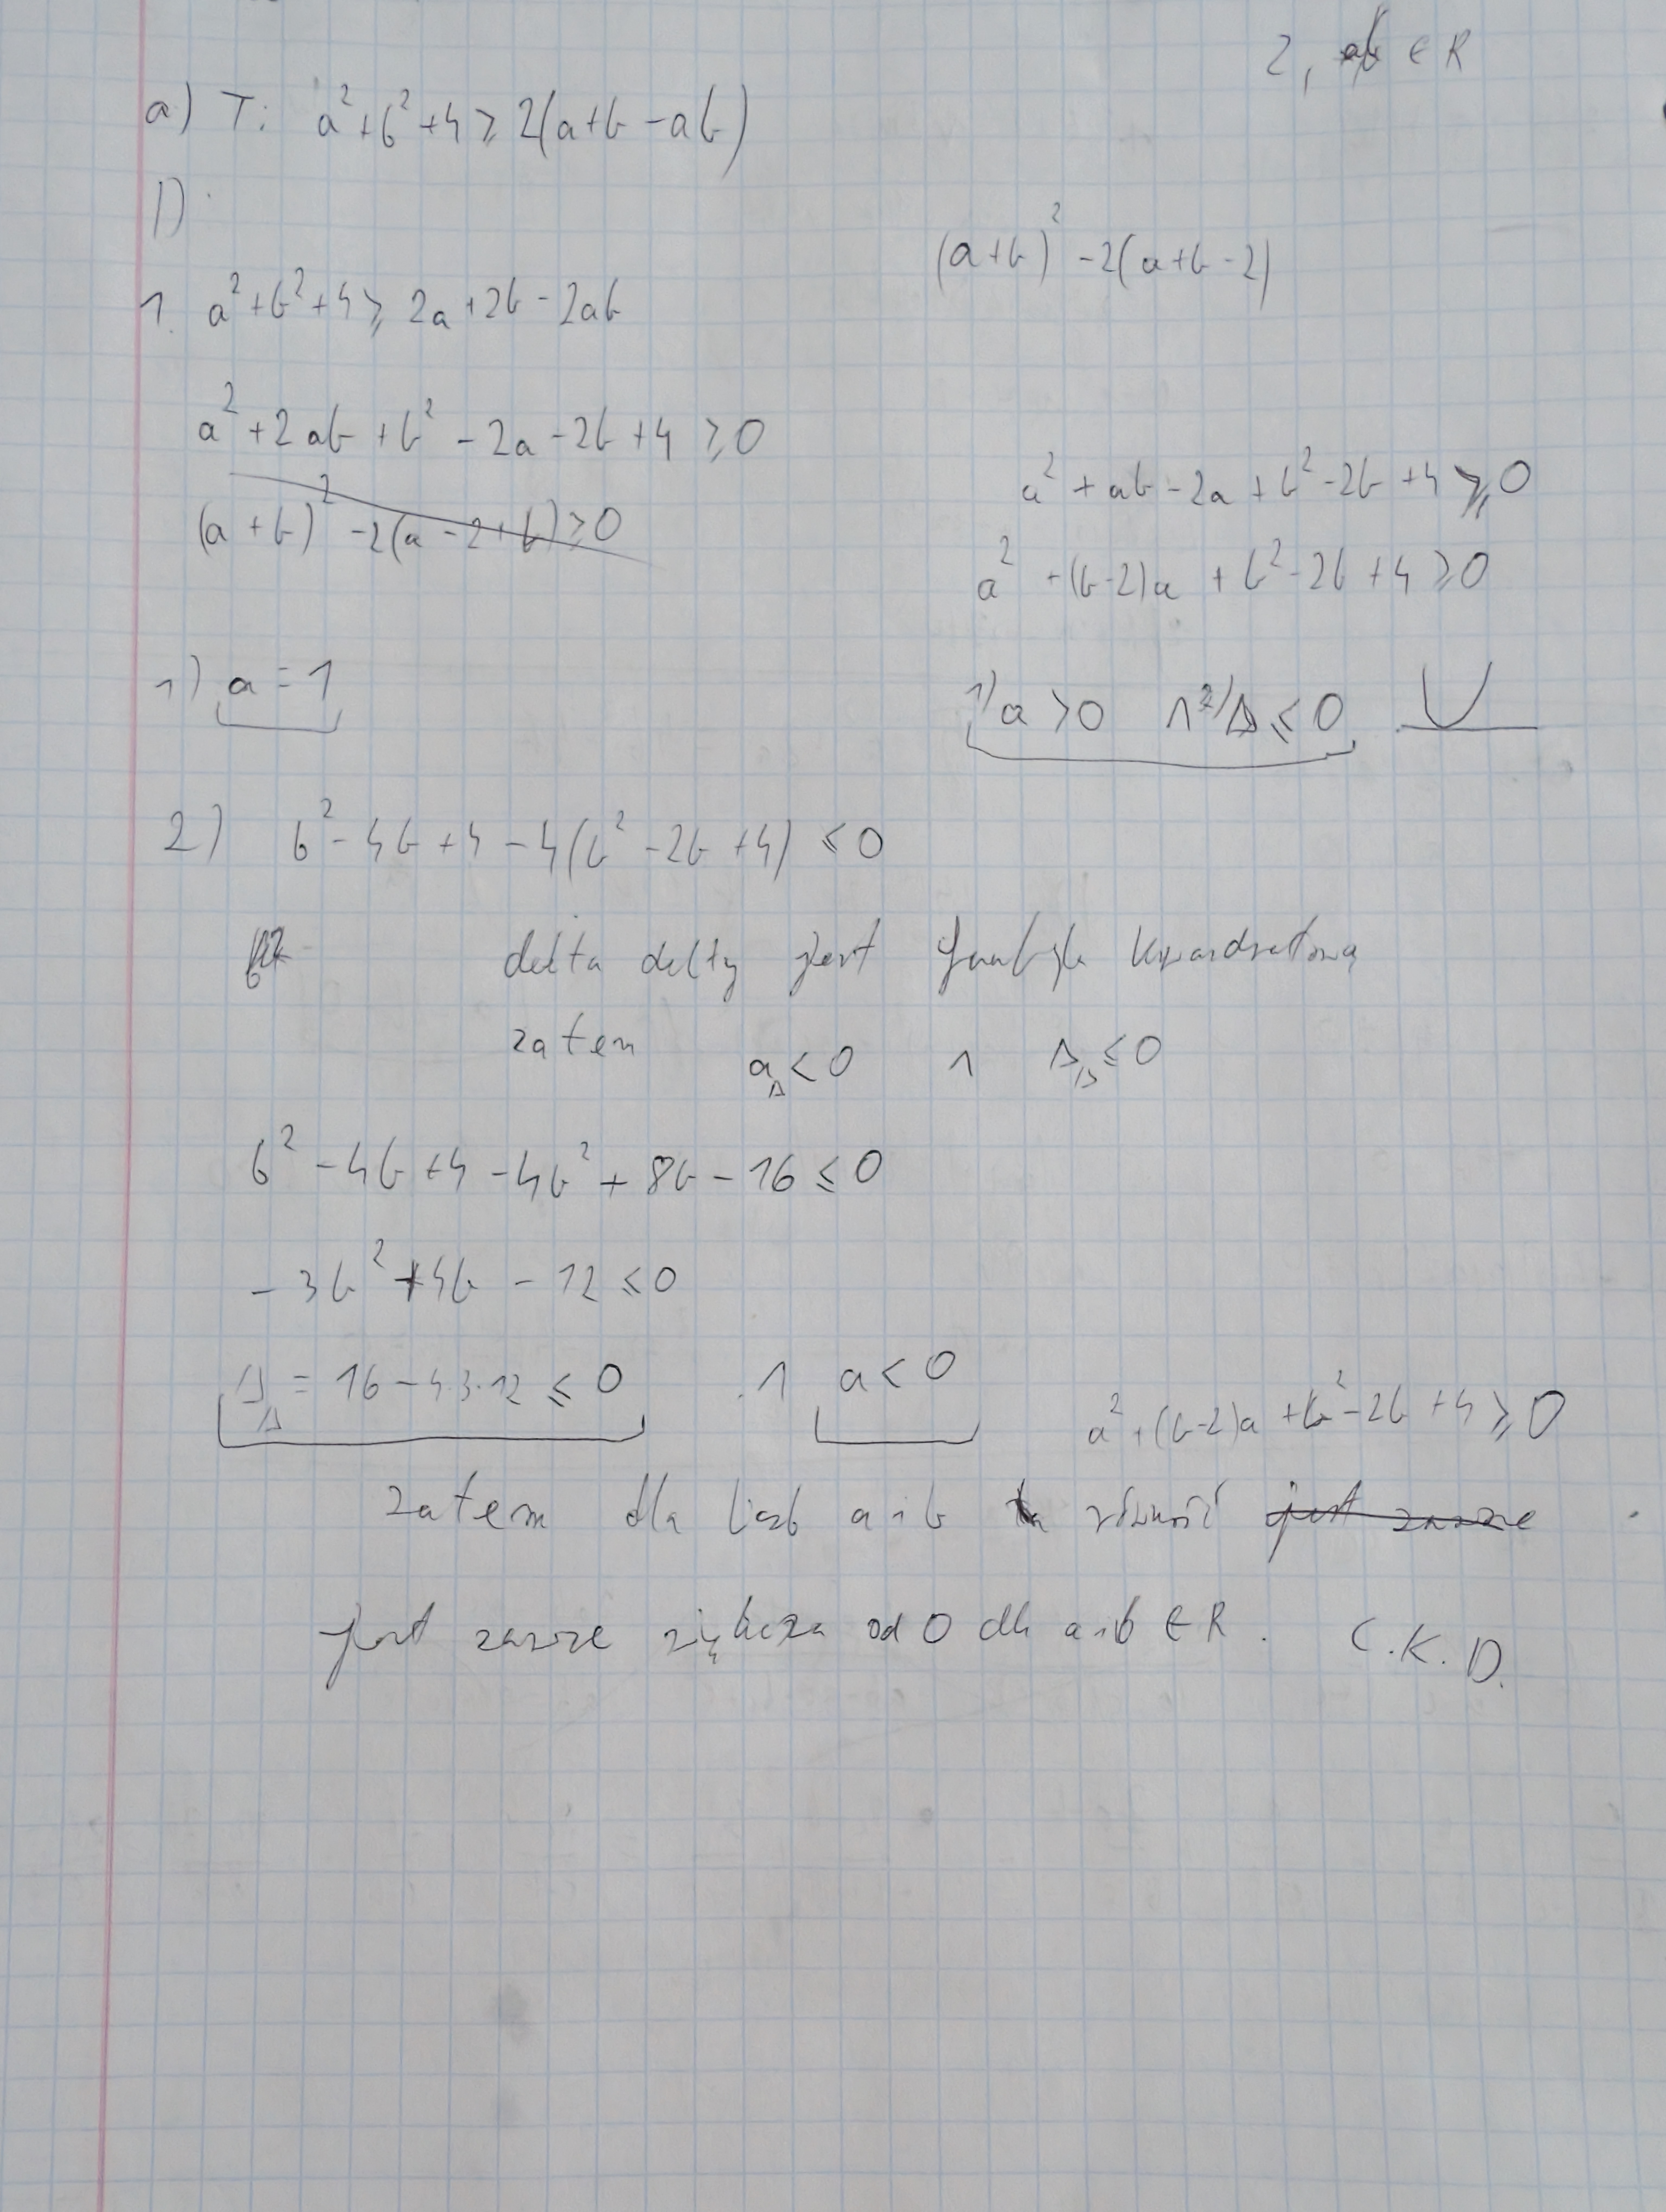 2, ab ∈ R
a) T: a² + b² + 4 ≥ 2(a+b-ab)
D
(a+b)² - 2(a+b-2)
1. a² + b² + 4 ≥ 2a + 2b - 2ab
a² + 2ab + b² - 2a - 2b + 4 ≥ 0
(a+b)² - 2(a-2+b) ≥ 0
a² + ab - 2a + b² - 2b + 4 ≥ 0
a² + (b-2)a + b² - 2b + 4 ≥ 0
1) a = 1
1) a > 0 ∧ 2) Δ ≤ 0
2) b² - 4b + 4 - 4(b² - 2b + 4) ≤ 0
delta delty jest funkcją kwardratową
zatem a_Δ < 0 ∧ Δ_Δ ≤ 0
b² - 4b + 4 - 4b² + 8b - 16 ≤ 0
- 3b² + 4b - 12 ≤ 0
Δ_Δ = 16 - 4·3·12 ≤ 0 ∧ a < 0
a² + (b-2)a + b² - 2b + 4 ≥ 0
zatem dla liczb a i b ta równość jest zawsze
jest zawsze większa od 0 dla a i b ∈ R. C.K.D.